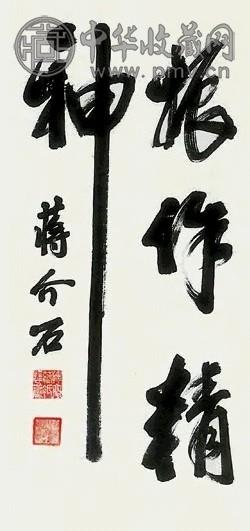 振作精
神
蔣介石
中华收藏网
www.pmx.cn